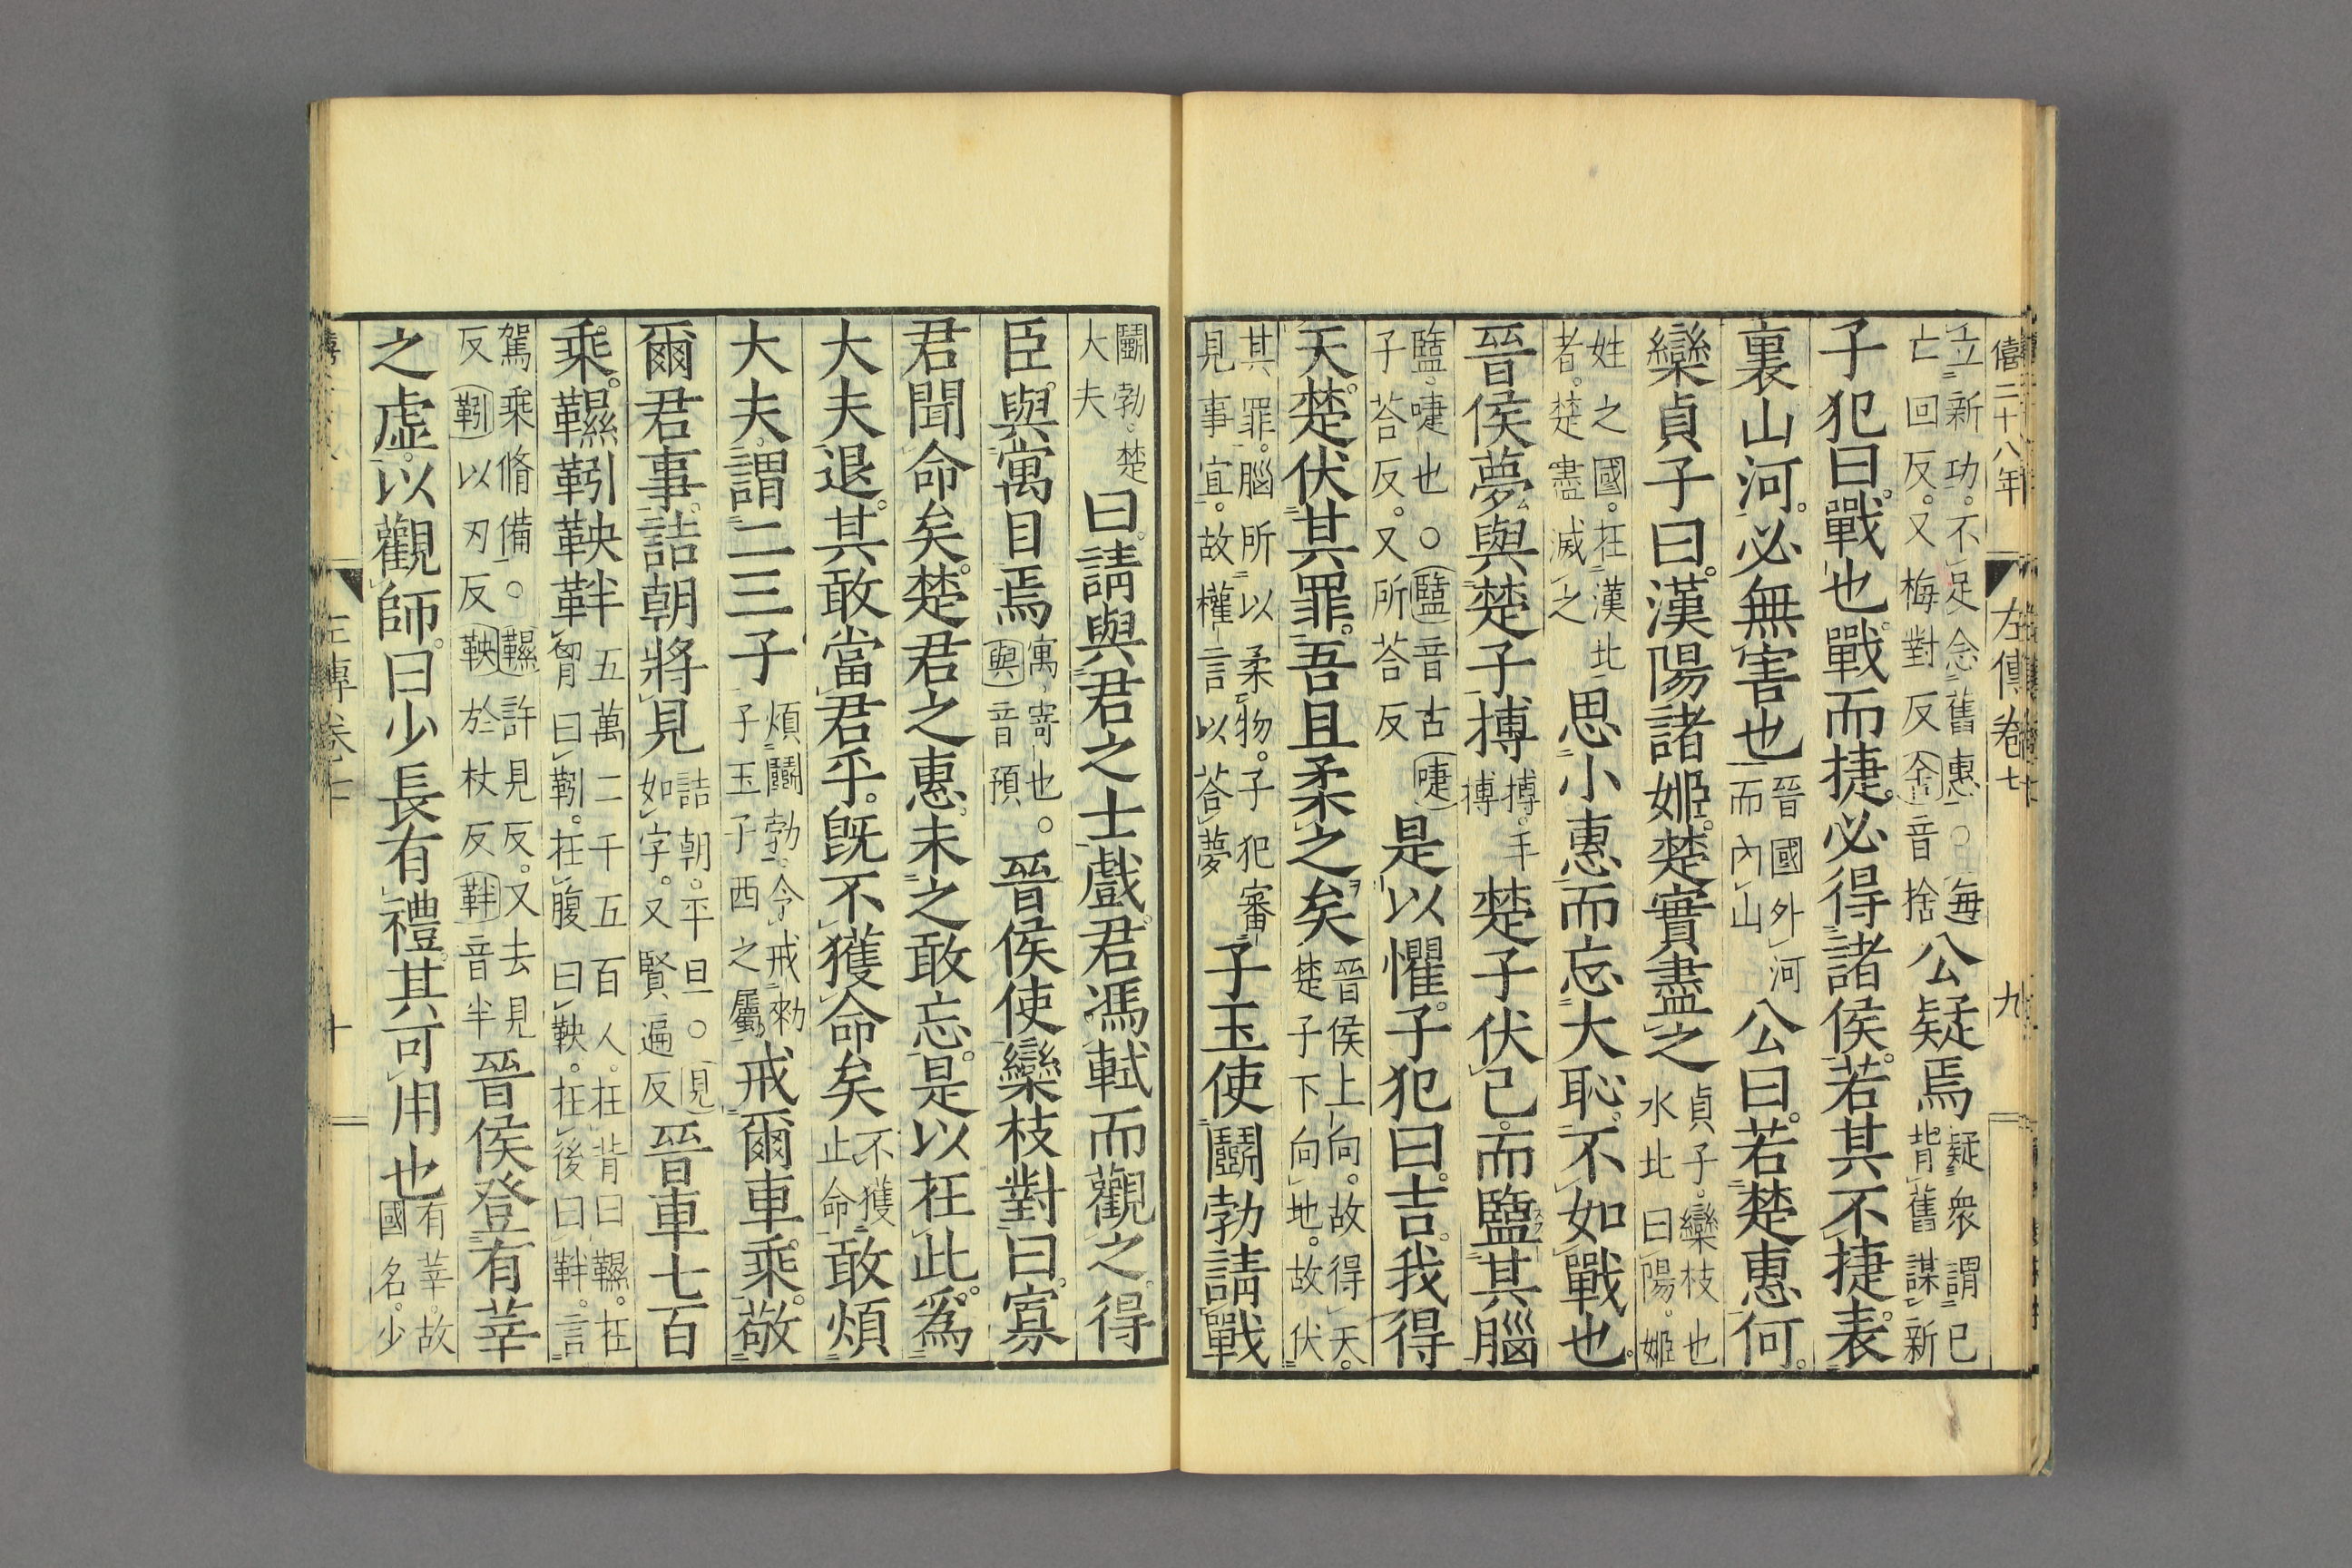 僖二十八年 左傳卷七 九
立新功。不足念舊惠。○每
亡回反。又梅對反舍音捨
公疑焉
疑衆謂已
背舊謀新
子犯曰。戰也。戰而捷。必得諸侯。若其不捷。表
裏山河。必無害也
晉國外河
而內山
公曰。若楚惠何。
欒貞子曰。漢陽諸姬。楚實盡之
貞子。欒枝也
水北曰陽。姬
姓之國。在漢北
者。楚盡滅之
思小惠而忘大恥。不如戰也。
晉侯夢與楚子搏
搏。手
搏
楚子伏己。而盬其腦
盬、啑也○盬音古啑
子荅反。又所荅反
是以懼。子犯曰。吉。我得
天。楚伏其罪。吾且柔之矣
晉侯上向。故得天。
楚子下向地。故伏
其罪。腦所以柔物。子犯審
見事宜。故權言以荅夢
子玉使鬬勃請戰
鬬勃。楚
大夫
曰。請與君之士戲。君馮軾而觀之。得
臣與寓目焉
寓、寄也。
與音預
晉侯使欒枝對曰。寡
君聞命矣。楚君之惠。未之敢忘。是以在此。爲
大夫退。其敢當君乎。既不獲命矣
不獲
止命
敢煩
大夫。謂二三子
煩鬬勃、令戒勑
子玉子西之屬
戒爾車乘。敬
爾君事。詰朝將見
詰朝。平旦。○見
如字。又賢遍反
晉車七百
乘。韅靷鞅靽
五萬二千五百人。在背曰韅。在
胷曰靷。在腹曰鞅。在後曰靽。言
駕乘脩備。○韅許見反。又去見
反靷以刃反鞅於杖反靽音半
晉侯登有莘
之虛。以觀師。曰少長有禮。其可用也
有莘。故
國名。少
左傳卷七 十